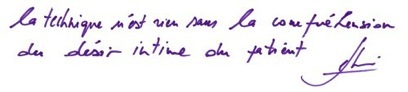 la technique n'est rien sans la compréhension
du désir intime du patient